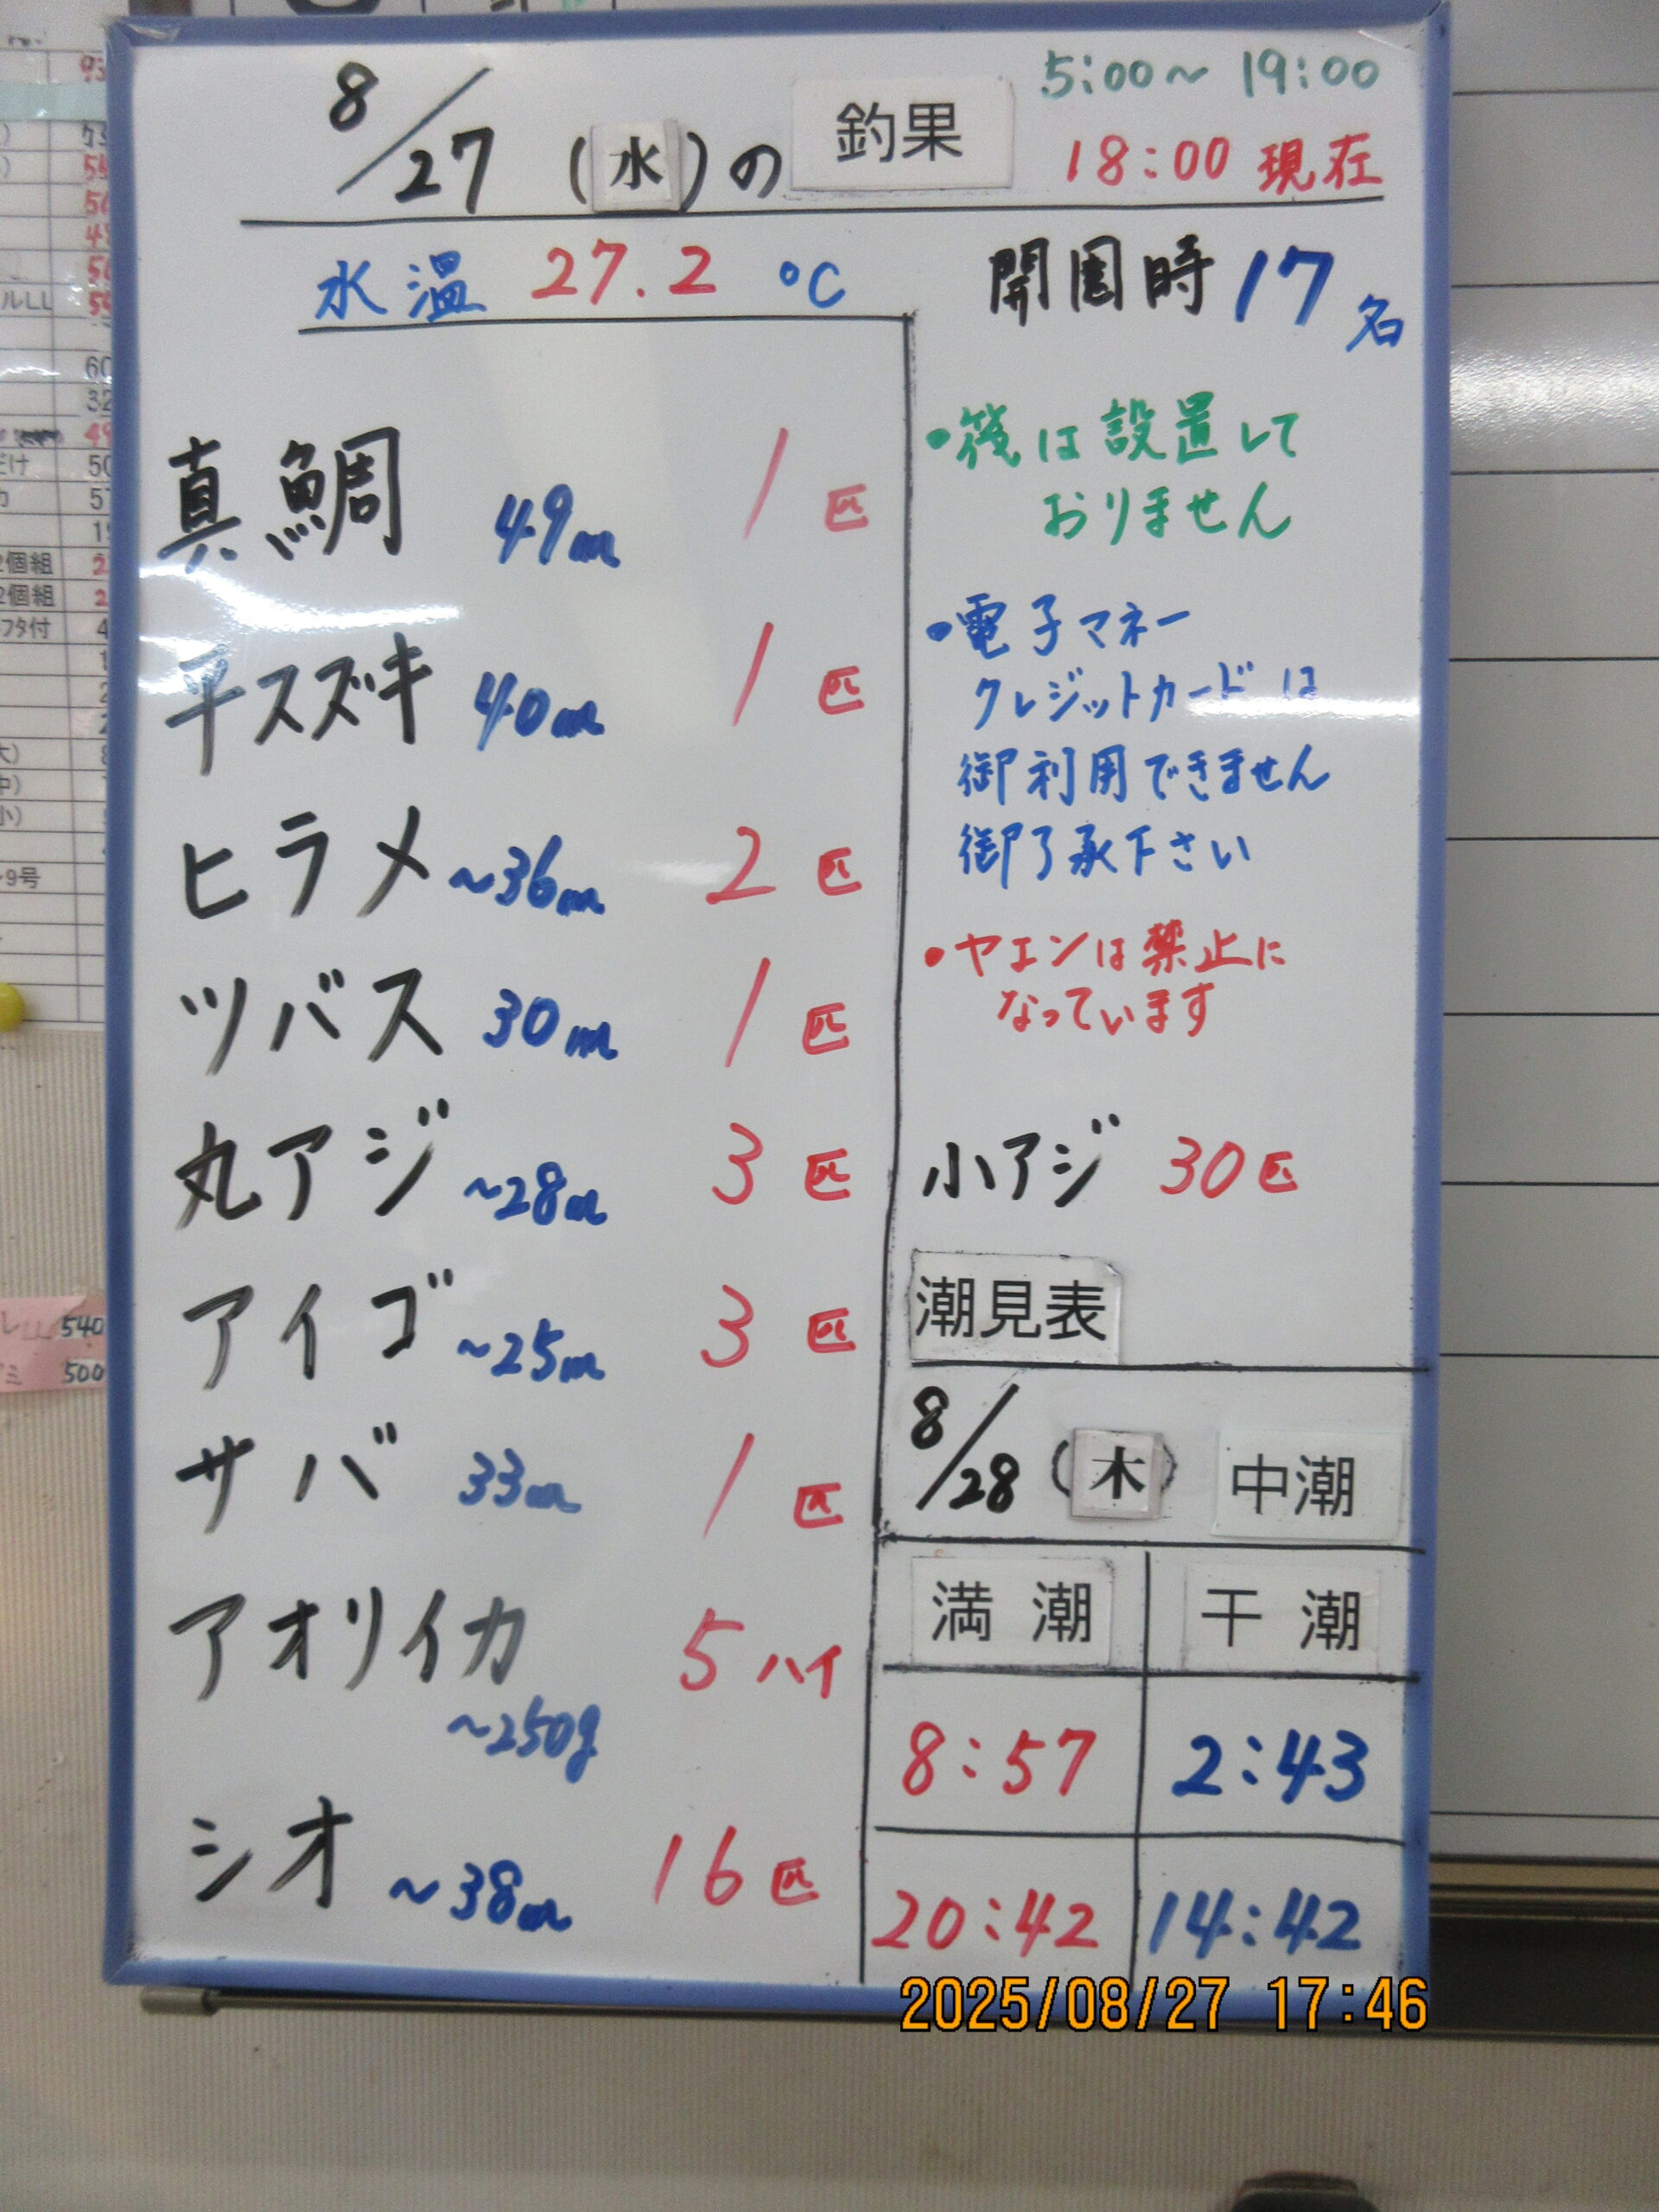 8/27 (水)の 釣果
5:00～19:00
18:00 現在
水温 27.2 ℃
開園時 17名
真鯛 49cm 1匹
平スズキ 40cm 1匹
ヒラメ ～36cm 2匹
ツバス 30cm 1匹
丸アジ ～28cm 3匹
アイゴ ～25cm 3匹
サバ 33cm 1匹
アオリイカ ～250g 5ハイ
シオ ～38cm 16匹
・筏は設置して
おりません
・電子マネー
クレジットカードは
御利用できません
御了承下さい
・ヤエンは禁止に
なっています
小アジ 30匹
潮見表
8/28 (木) 中潮
満潮 干潮
8:57 2:43
20:42 14:42
2025/08/27 17:46
ルLL
2個組
2個組
フタ付
9号
540
500